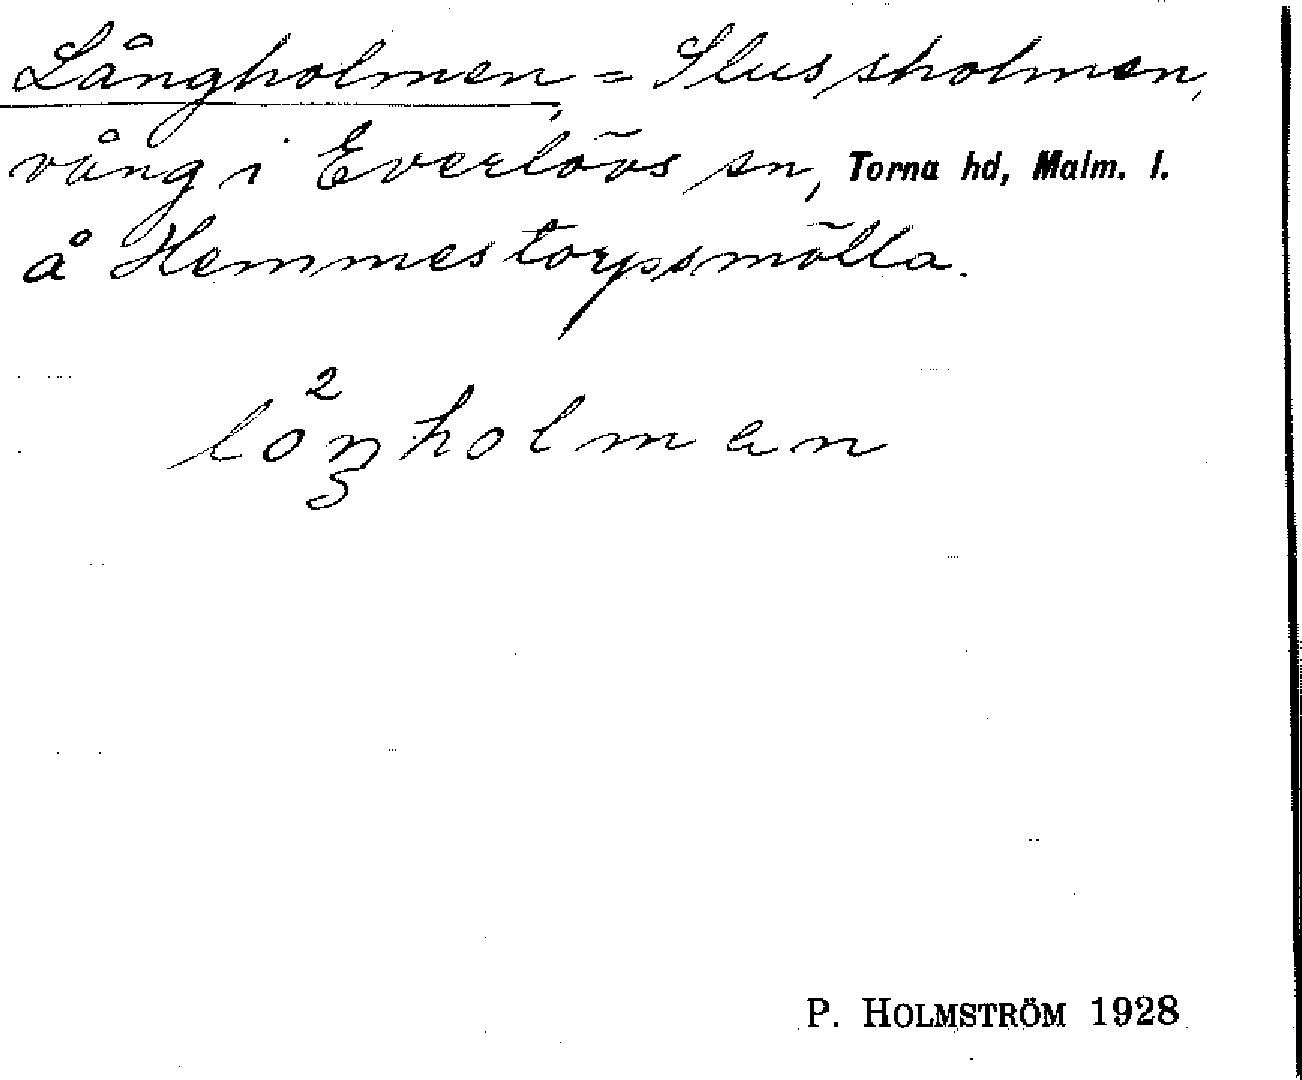 Långholmen, = Slussholmen,
vång i Everlövs sn, Torna hd, Malm. l.
å Hemmestorpsmölla.
lo²ŋholmən
P. HOLMSTRÖM 1928